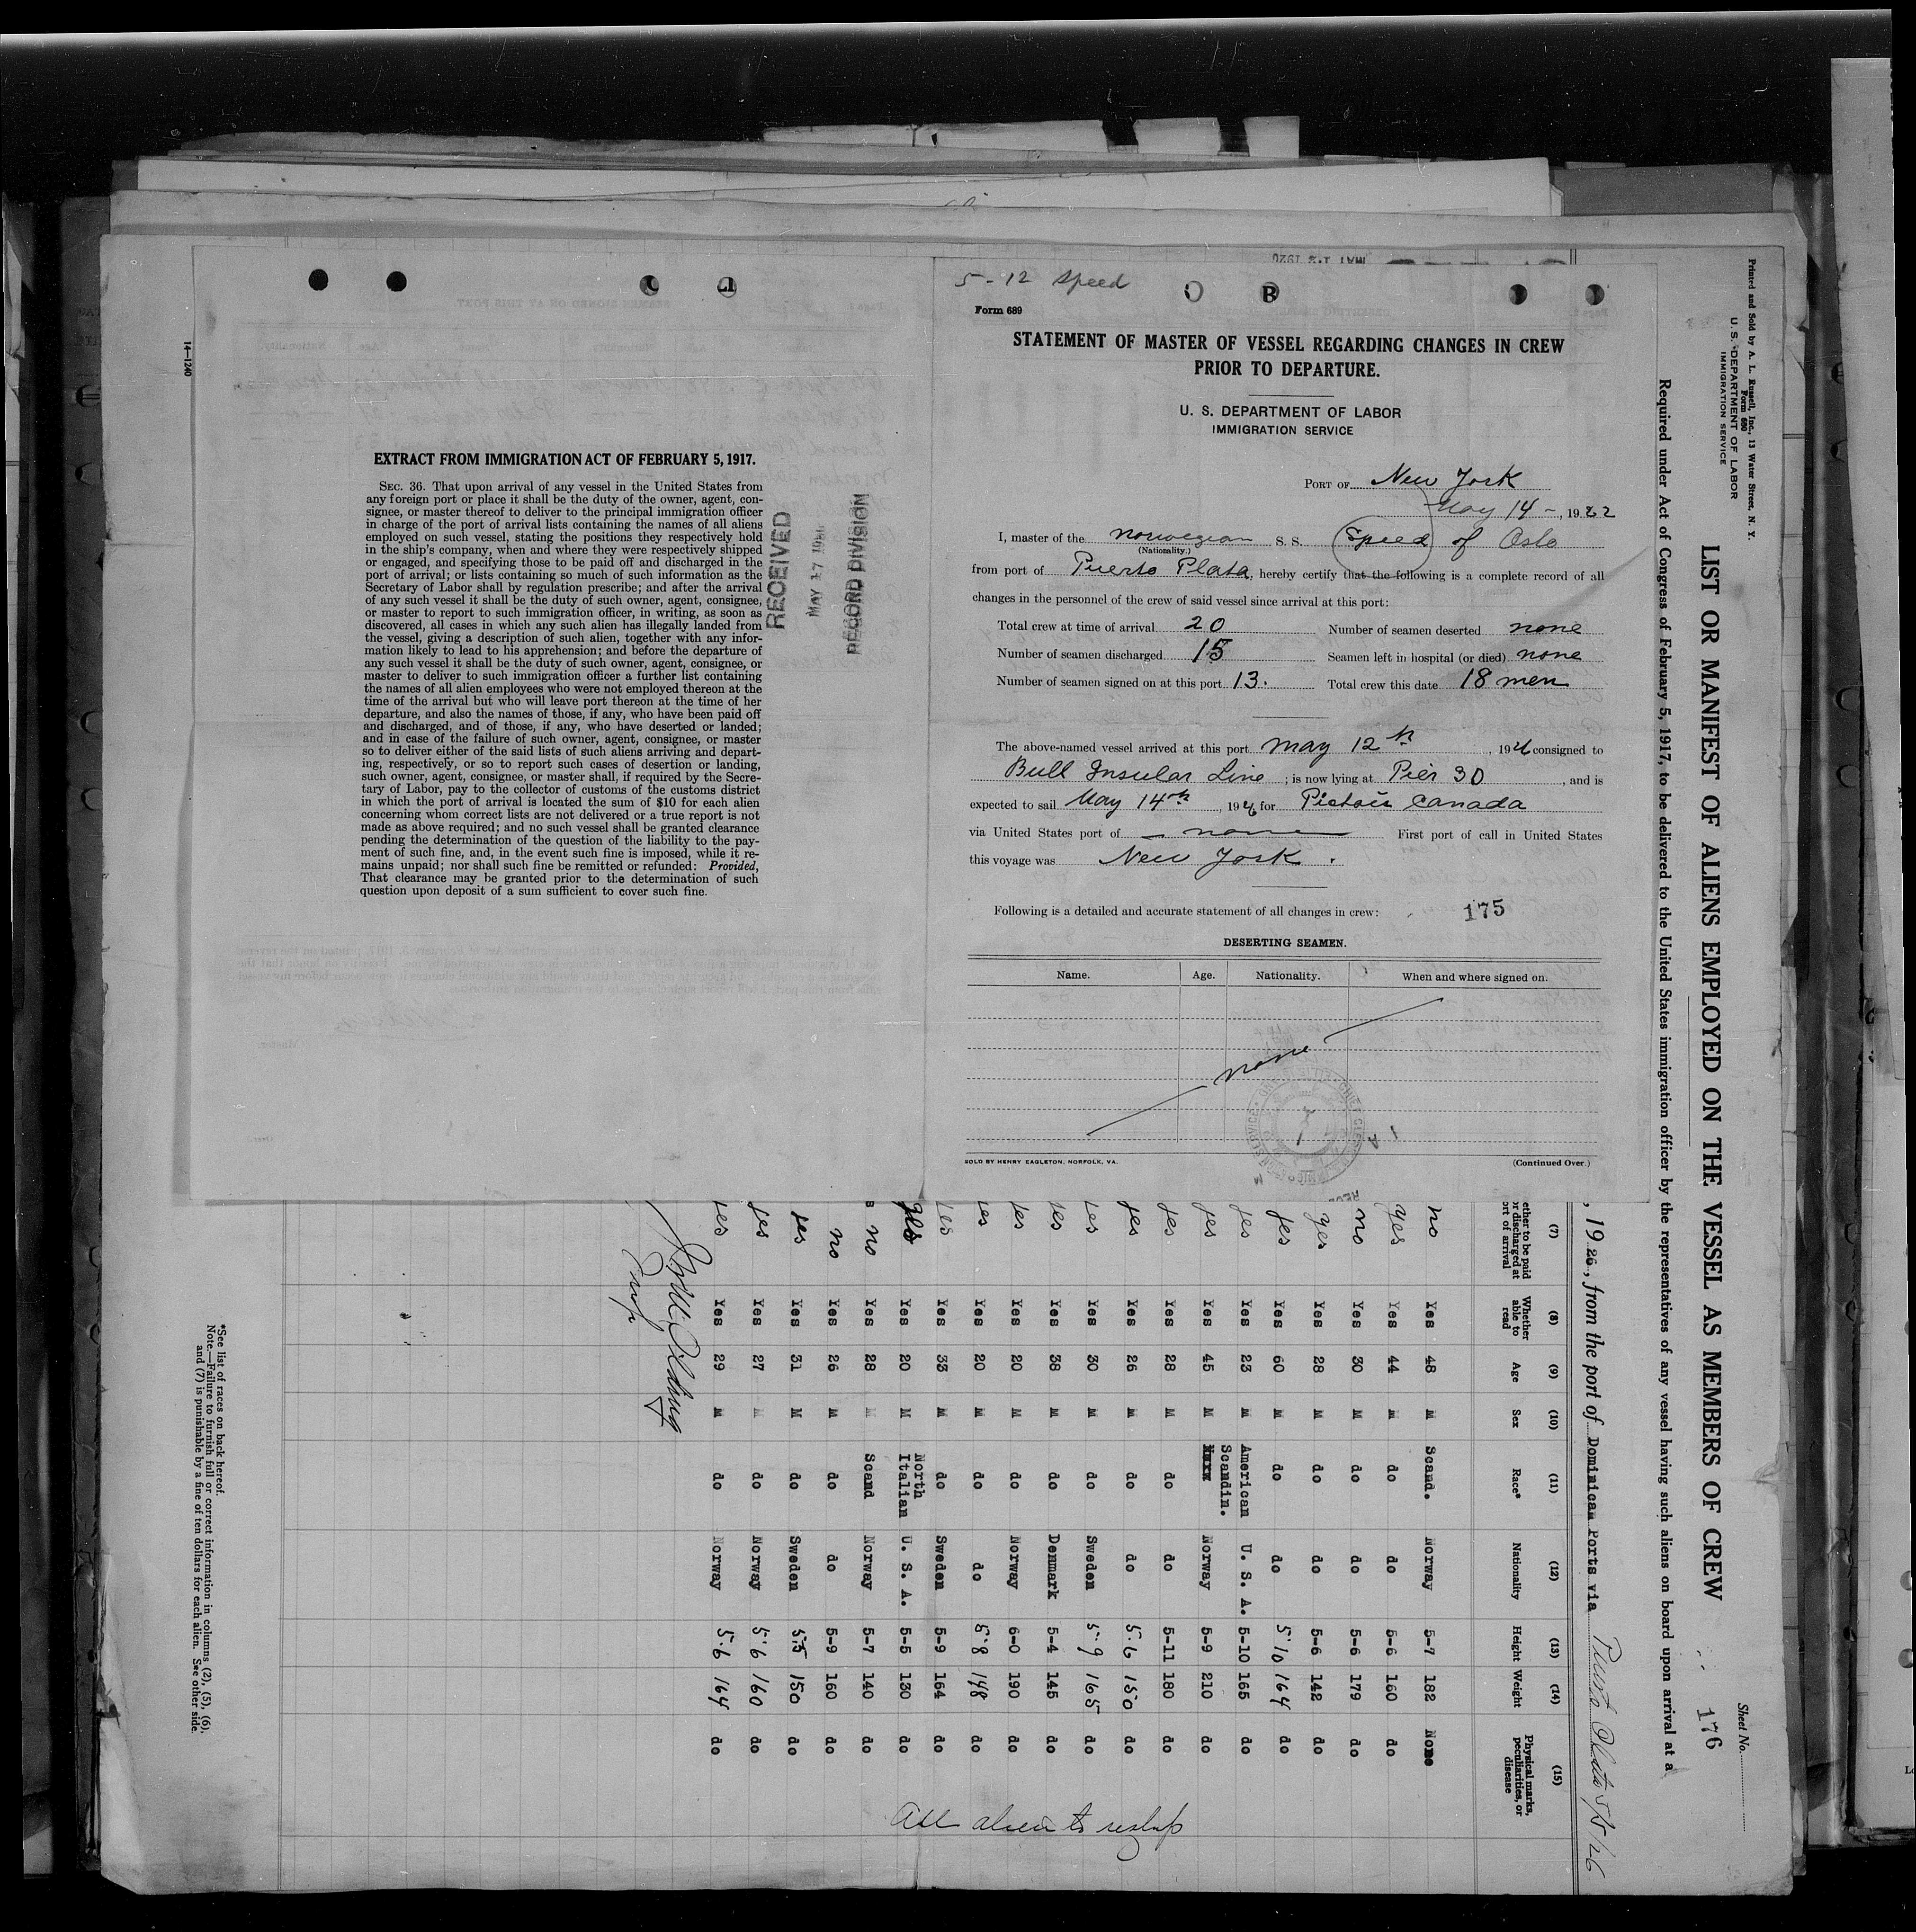 14—1240
EXTRACT FROM IMMIGRATION ACT OF FEBRUARY 5, 1917.
SEC. 36. That upon arrival of any vessel in the United States from
any foreign port or place it shall be the duty of the owner, agent, con-
signee, or master thereof to deliver to the principal immigration officer
in charge of the port of arrival lists containing the names of all aliens
employed on such vessel, stating the positions they respectively hold
in the ship's company, when and where they were respectively shipped
or engaged, and specifying those to be paid off and discharged in the
port of arrival; or lists containing so much of such information as the
Secretary of Labor shall by regulation prescribe; and after the arrival
of any such vessel it shall be the duty of such owner, agent, consignee,
or master to report to such immigration officer, in writing, as soon as
discovered, all cases in which any such alien has illegally landed from
the vessel, giving a description of such alien, together with any infor-
mation likely to lead to his apprehension; and before the departure of
any such vessel it shall be the duty of such owner, agent, consignee, or
master to deliver to such immigration officer a further list containing
the names of all alien employees who were not employed thereon at the
time of the arrival but who will leave port thereon at the time of her
departure, and also the names of those, if any, who have been paid off
and discharged, and of those, if any, who have deserted or landed;
and in case of the failure of such owner, agent, consignee, or master
so to deliver either of the said lists of such aliens arriving and depart-
ing, respectively, or so to report such cases of desertion or landing,
such owner, agent, consignee, or master shall, if required by the Secre-
tary of Labor, pay to the collector of customs of the customs district
in which the port of arrival is located the sum of $10 for each alien
concerning whom correct lists are not delivered or a true report is not
made as above required; and no such vessel shall be granted clearance
pending the determination of the question of the liability to the pay-
ment of such fine, and, in the event such fine is imposed, while it re-
mains unpaid; nor shall such fine be remitted or refunded: Provided,
That clearance may be granted prior to the determination of such
question upon deposit of a sum sufficient to cover such fine.
RECEIVED
MAY 17
RECORD DIVISION
5-12 Speed
Form 689
STATEMENT OF MASTER OF VESSEL REGARDING CHANGES IN CREW
PRIOR TO DEPARTURE.
U. S. DEPARTMENT OF LABOR
IMMIGRATION SERVICE
PORT OF New York
May 14 -, 19
I, master of the norwegian S. S. Speed of Oslo
(Nationality.)
from port of Puerto Plata, hereby certify that the following is a complete record of all
changes in the personnel of the crew of said vessel since arrival at this port:
Total crew at time of arrival 20 Number of seamen deserted none
Number of seamen discharged 15 Seamen left in hospital (or died) none
Number of seamen signed on at this port 13. Total crew this date 18 men
The above-named vessel arrived at this port may 12th, 19 consigned to
Bull Insular Line; is now lying at Pier 30, and is
expected to sail May 14th, 19 for Canada
via United States port of none First port of call in United States
this voyage was New York.
Following is a detailed and accurate statement of all changes in crew: 175
DESERTING SEAMEN.
Name. Age. Nationality. When and where signed on.
none
SOLD BY HENRY EAGLETON, NORFOLK, VA. (Continued Over.)
Printed and Sold by A. L. Russell, Inc., 13 Water Street, N. Y.
Form 680
U. S. DEPARTMENT OF LABOR
IMMIGRATION SERVICE
Sheet No.
176
LIST OR MANIFEST OF ALIENS EMPLOYED ON THE VESSEL AS MEMBERS OF CREW
Required under Act of Congress of February 5, 1917, to be delivered to the United States immigration officer by the representatives of any vessel having such aliens on board upon arrival at a
, 1926, from the port of Dominican Ports via Puerto Plata 5/5/26
(7) (8) (9) (10) (11) (12) (13) (14) (15)
ether to be paid or discharged at ort of arrival Whether able to read Age Sex Race* Nationality Height Weight Physical marks, peculiarities, or disease
no Yes 48 M Scand. Norway 5-7 182 None
yes Yes 44 M do do 5-6 160 do
no Yes 30 M do do 5-6 179 do
yes Yes 28 M do do 5-6 142 do
yes Yes 60 M do do 5'10 164 do
yes Yes 23 M American U. S. A. 5-10 165 do
yes Yes 45 M Scandin. Norway 5-9 210 do
yes Yes 28 M do do 5-11 180 do
yes Yes 26 M do do 5.6 150 do
yes Yes 30 M do Sweden 5.9 165 do
yes Yes 38 M do Denmark 5-4 145 do
yes Yes 20 M do Norway 6-0 190 do
yes Yes 20 M do do 5.8 148 do
yes Yes 33 M do Sweden 5-9 164 do
yes Yes 20 M North Italian U. S. A. 5-5 130 do
no Yes 28 M Scand Norway 5-7 140 do
no Yes 26 M do do 5-9 160 do
yes Yes 31 M do Sweden 5.5 150 do
yes Yes 27 M do Norway 5'6 160 do
yes Yes 29 M do Norway 5.6 164 do
All aliens to reship
*See list of races on back hereof.
Note.—Failure to furnish full or correct information in columns (2), (5), (6),
and (7) is punishable by a fine of ten dollars for each alien. See other side.